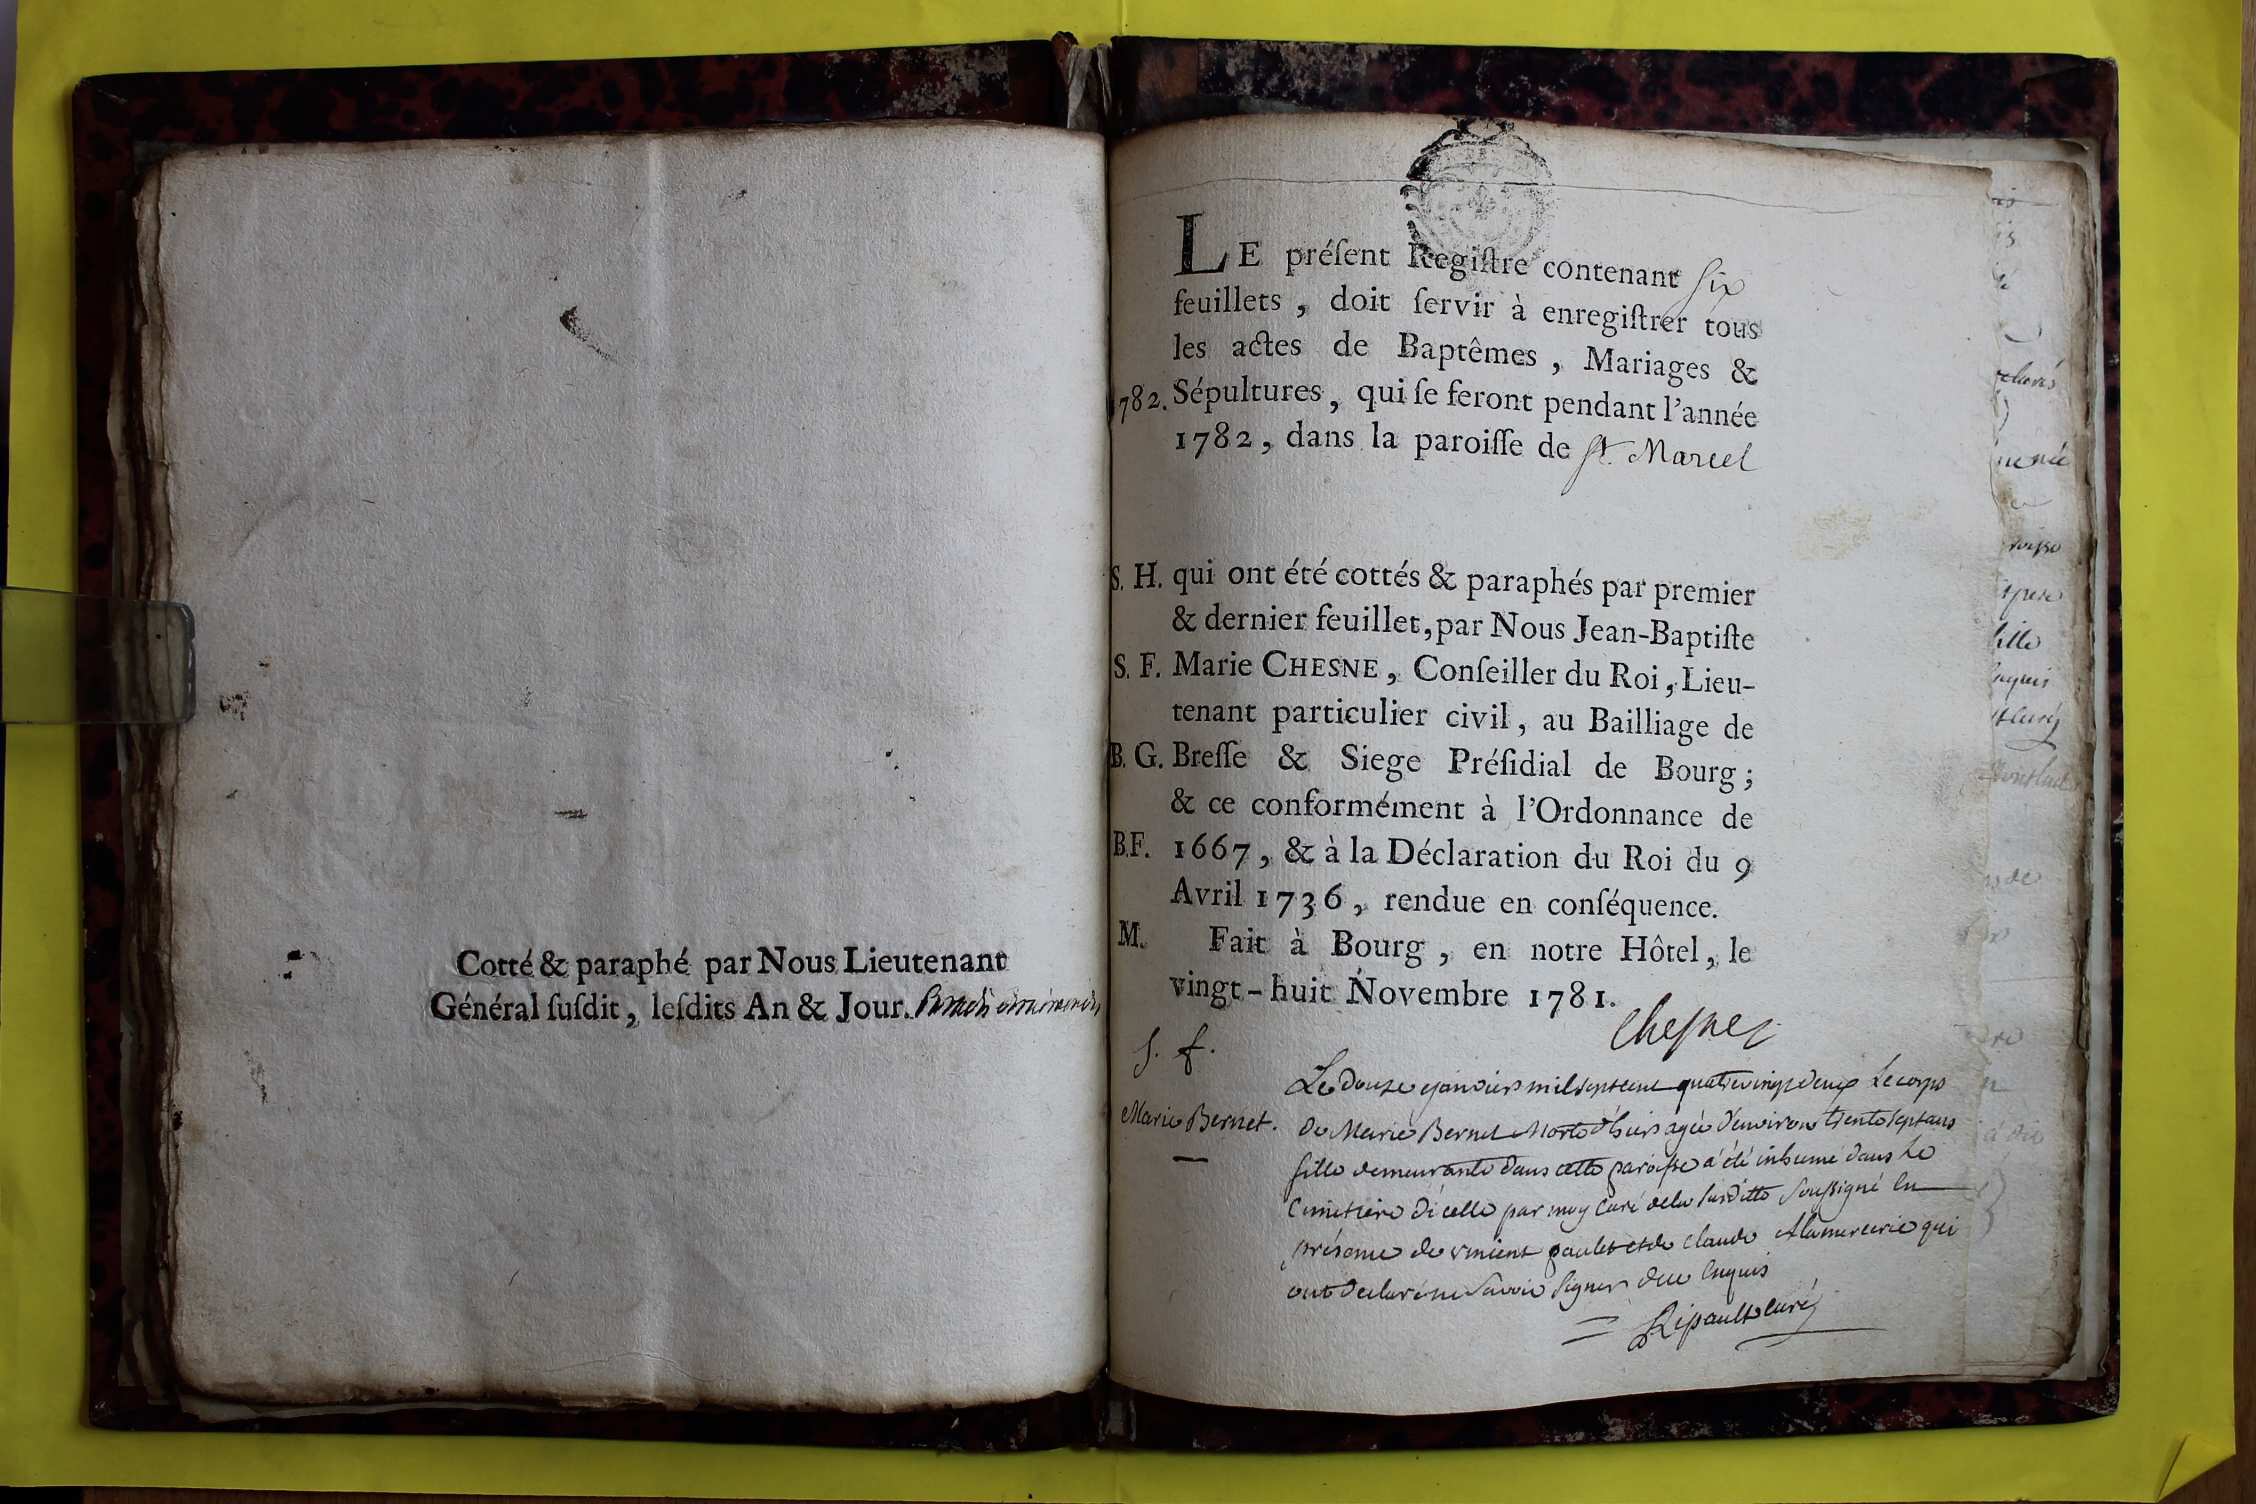 Cotté & paraphé par Nous Lieutenant
Général ſuſdit, leſdits An & Jour.
LE préſent Regiſtre contenant six
feuillets, doit ſervir à enregiſtrer tous
les actes de Baptêmes, Mariages &
1782. Sépultures, qui ſe feront pendant l'année
1782, dans la paroiſſe de St. Marcel
S. H. qui ont été cottés & paraphés par premier
& dernier feuillet, par Nous Jean-Baptiſte
S. F. Marie CHESNE, Conſeiller du Roi, Lieu-
tenant particulier civil, au Bailliage de
B. G. Breſſe & Siege Préſidial de Bourg;
& ce conformément à l'Ordonnance de
B.F. 1667, & à la Déclaration du Roi du 9
Avril 1736, rendue en conſéquence.
M. Fait à Bourg, en notre Hôtel, le
vingt-huit Novembre 1781.
Chesne
S. f.
Marie Bernet.
Le douze janvier mil sept cent quatre vingt deux le corps
de Marie Bernet morte d'hier agée d'environ trente sept ans
fille demeurante dans cette paroisse a été inhumé dans le
cimetiere d'icelle par moy curé de la susditte soussigné en
présence de vincent paulet et de claude Alamercerie qui
ont declaré ne savoir signer de ce enquis
Ripault curé